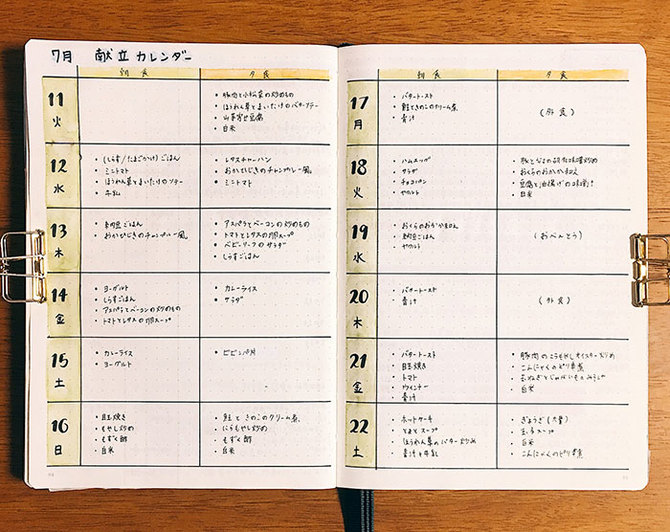 7月 献立カレンダー
朝食 夕食
11 火
・豚肉と小松菜の炒めもの
・ほうれん草とまいたけのバターソテー
・山芋寄せ豆腐
・白米
12 水
・(しらす/たまごかけ)ごはん
・ミニトマト
・ほうれん草とまいたけのソテー
・牛乳
・レタスチャーハン
・おかひじきのチャンプルー風。
・ミニトマト
13 木
・納豆ごはん
・おかひじきのチャンプルー風。
・アスパラとベーコンの炒めもの
・トマトとレタスの卵スープ
・ベビーリーフのサラダ
・しらすごはん
14 金
・ヨーグルト
・しらすごはん
・アスパラとベーコンの炒めもの
・トマトとレタスの卵スープ
・カレーライス
・サラダ
15 土
・カレーライス
・ヨーグルト
・ビビンバ丼
16 日
・目玉焼き
・もやし炒め
・もずく酢
・白米
・鮭ときのこのクリーム煮。
・にらもやし炒め
・もずく酢
・白米
朝食 夕食
17 月
・バタートースト
・鮭ときのこのクリーム煮
・青汁
(外食)
18 火
・ハムエッグ
・サラダ
・チョコパン
・ヤクルト
・おくらのおかか和え
・豆腐と油揚げの味噌汁
・白米
19 水
・おくらのおかか和え
・納豆ごはん
・ヤクルト
(おべんとう)
20 木
・バタートースト
・青汁
(外食)
21 金
・バタートースト
・目玉焼き
・トマト
・ウインナー
・青汁
・豚肉のこうもやしオイスター炒め
・こんにゃくのピリ辛煮
・玉ねぎとじゃがいものみそ汁
・白米
22 土
・ホットケーキ
・とまとスープ
・ほうれん草のバター炒め
・青汁と牛乳
・ぎょうざ(大量)
・玉子スープ
・白米
・こんにゃくのピリ辛煮